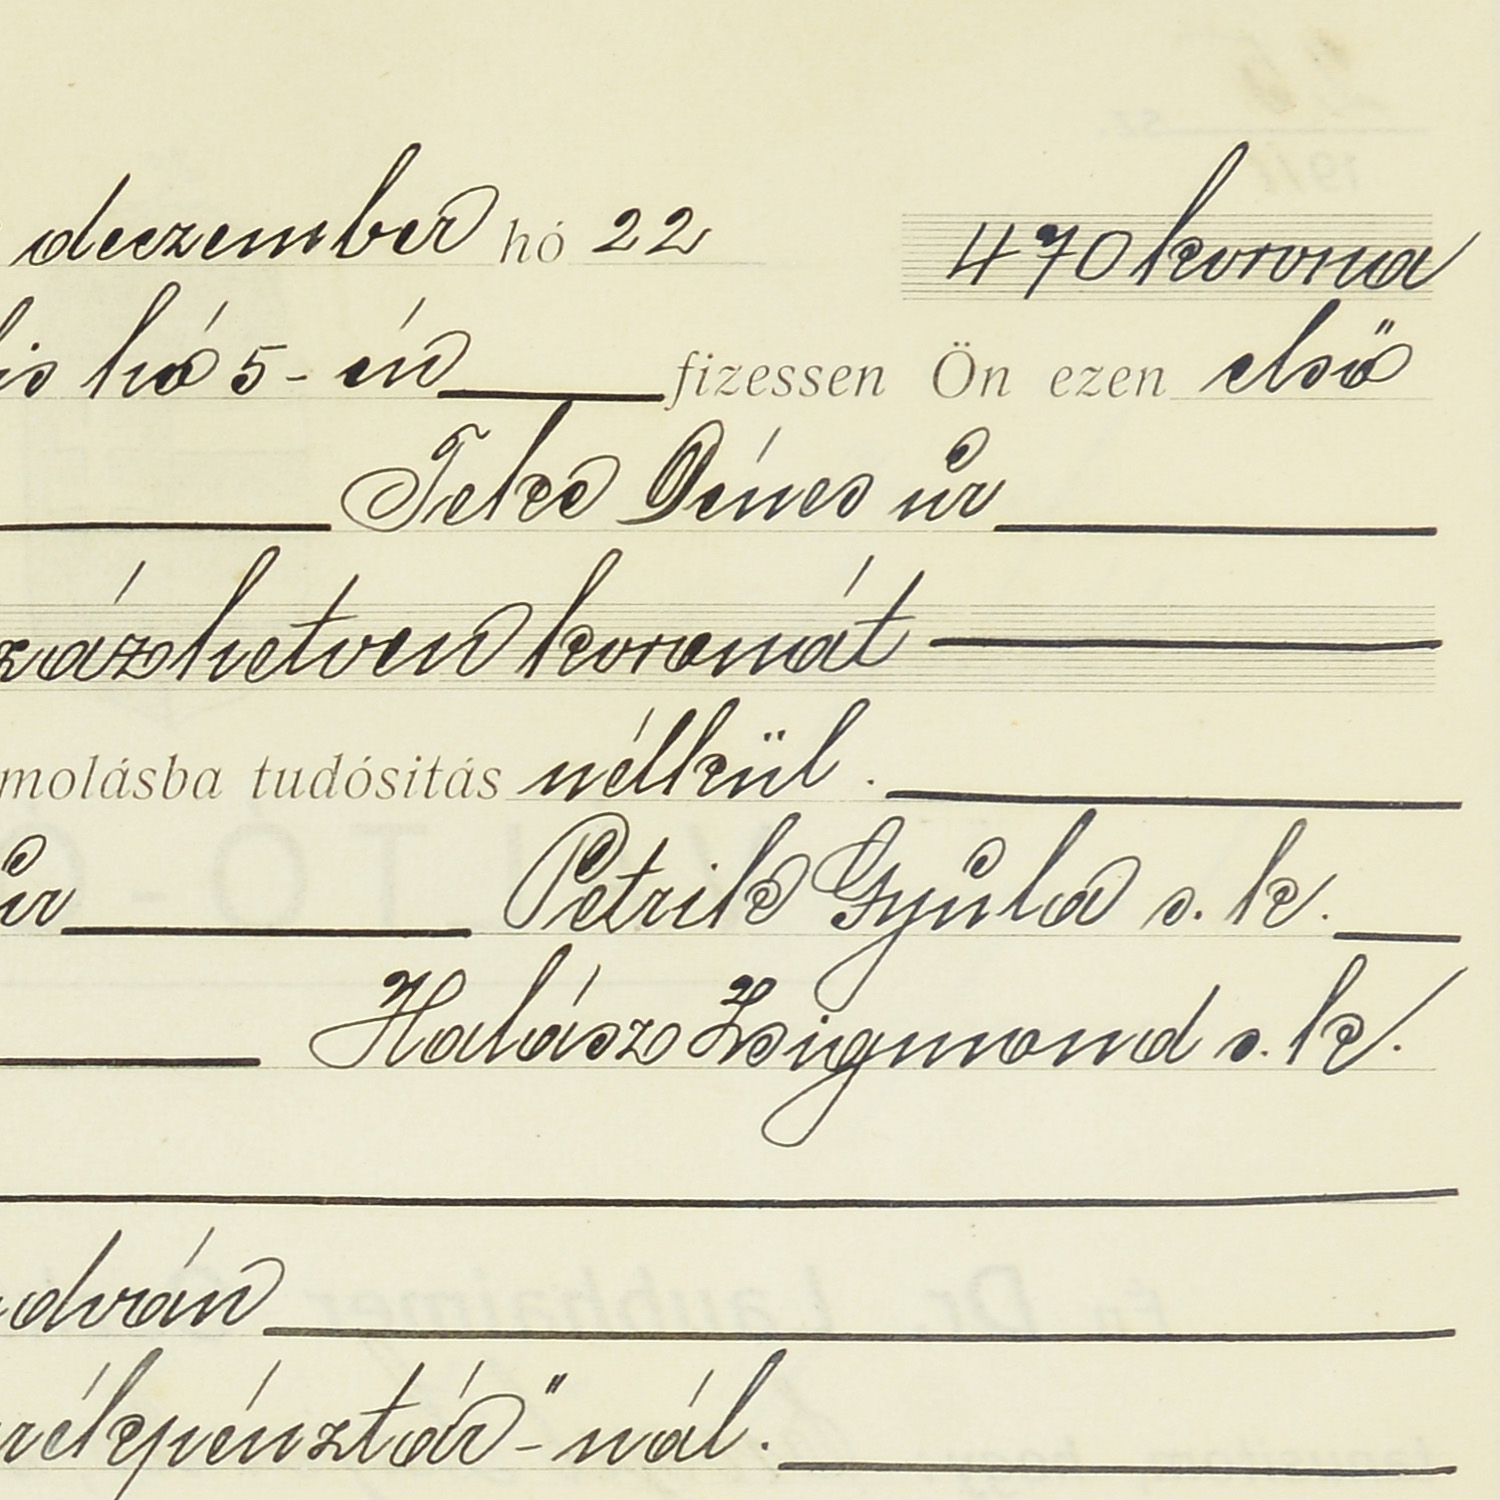 deczember hó 22 470 korona
is hó 5-én fizessen Ön ezen első
Teke Dénes úr
százhetven koronát
molásba tudósitás nélkül.
úr Petrik Gyula s. k.
Halász Zsigmond s. k.
udván
rékpénztár"-nál.